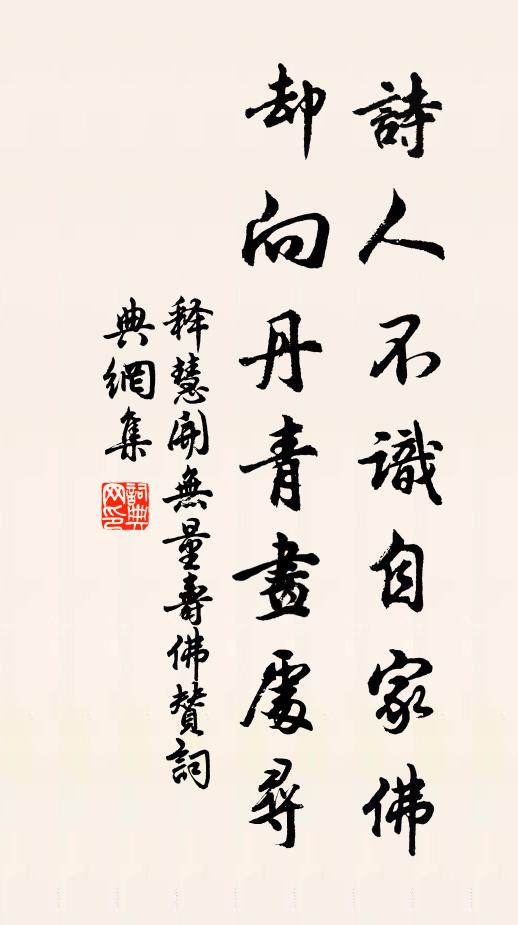 詩人不識自家佛
却向丹青畫處尋
釋慧開無量壽佛贊詞
典網集
詞典网印